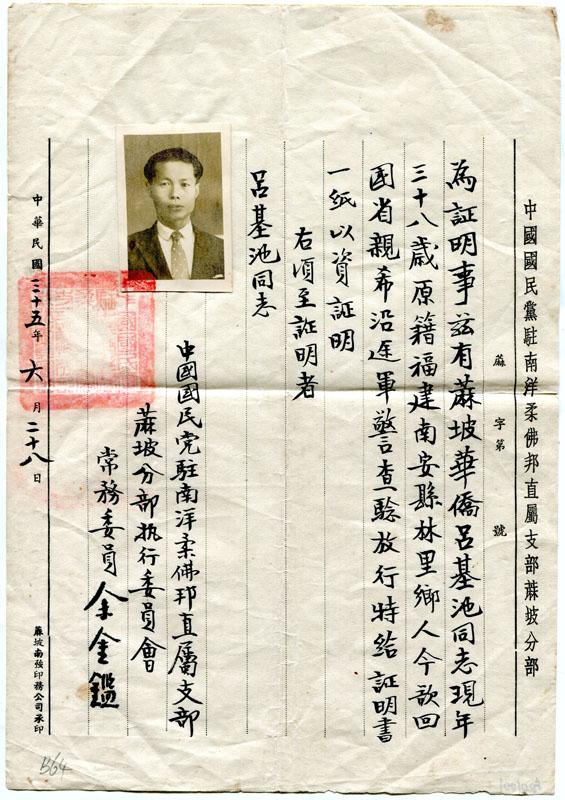 中國國民黨駐南洋柔佛邦直屬支部蔴坡分部
蔴字第 號
為証明事茲有蔴坡華僑呂基池同志現年
三十八歲原籍福建南安縣林里鄉人今欲回
國省親希沿途軍警查騐放行特給証明書
一紙以資証明
右須至証明者
呂基池同志
中國國民党駐南洋柔佛邦直屬支部
蔴坡分部执行委員會
常務委員 余金鑑
中華民國三十五年六月二十八日
蔴坡南強印務公司承印
B64